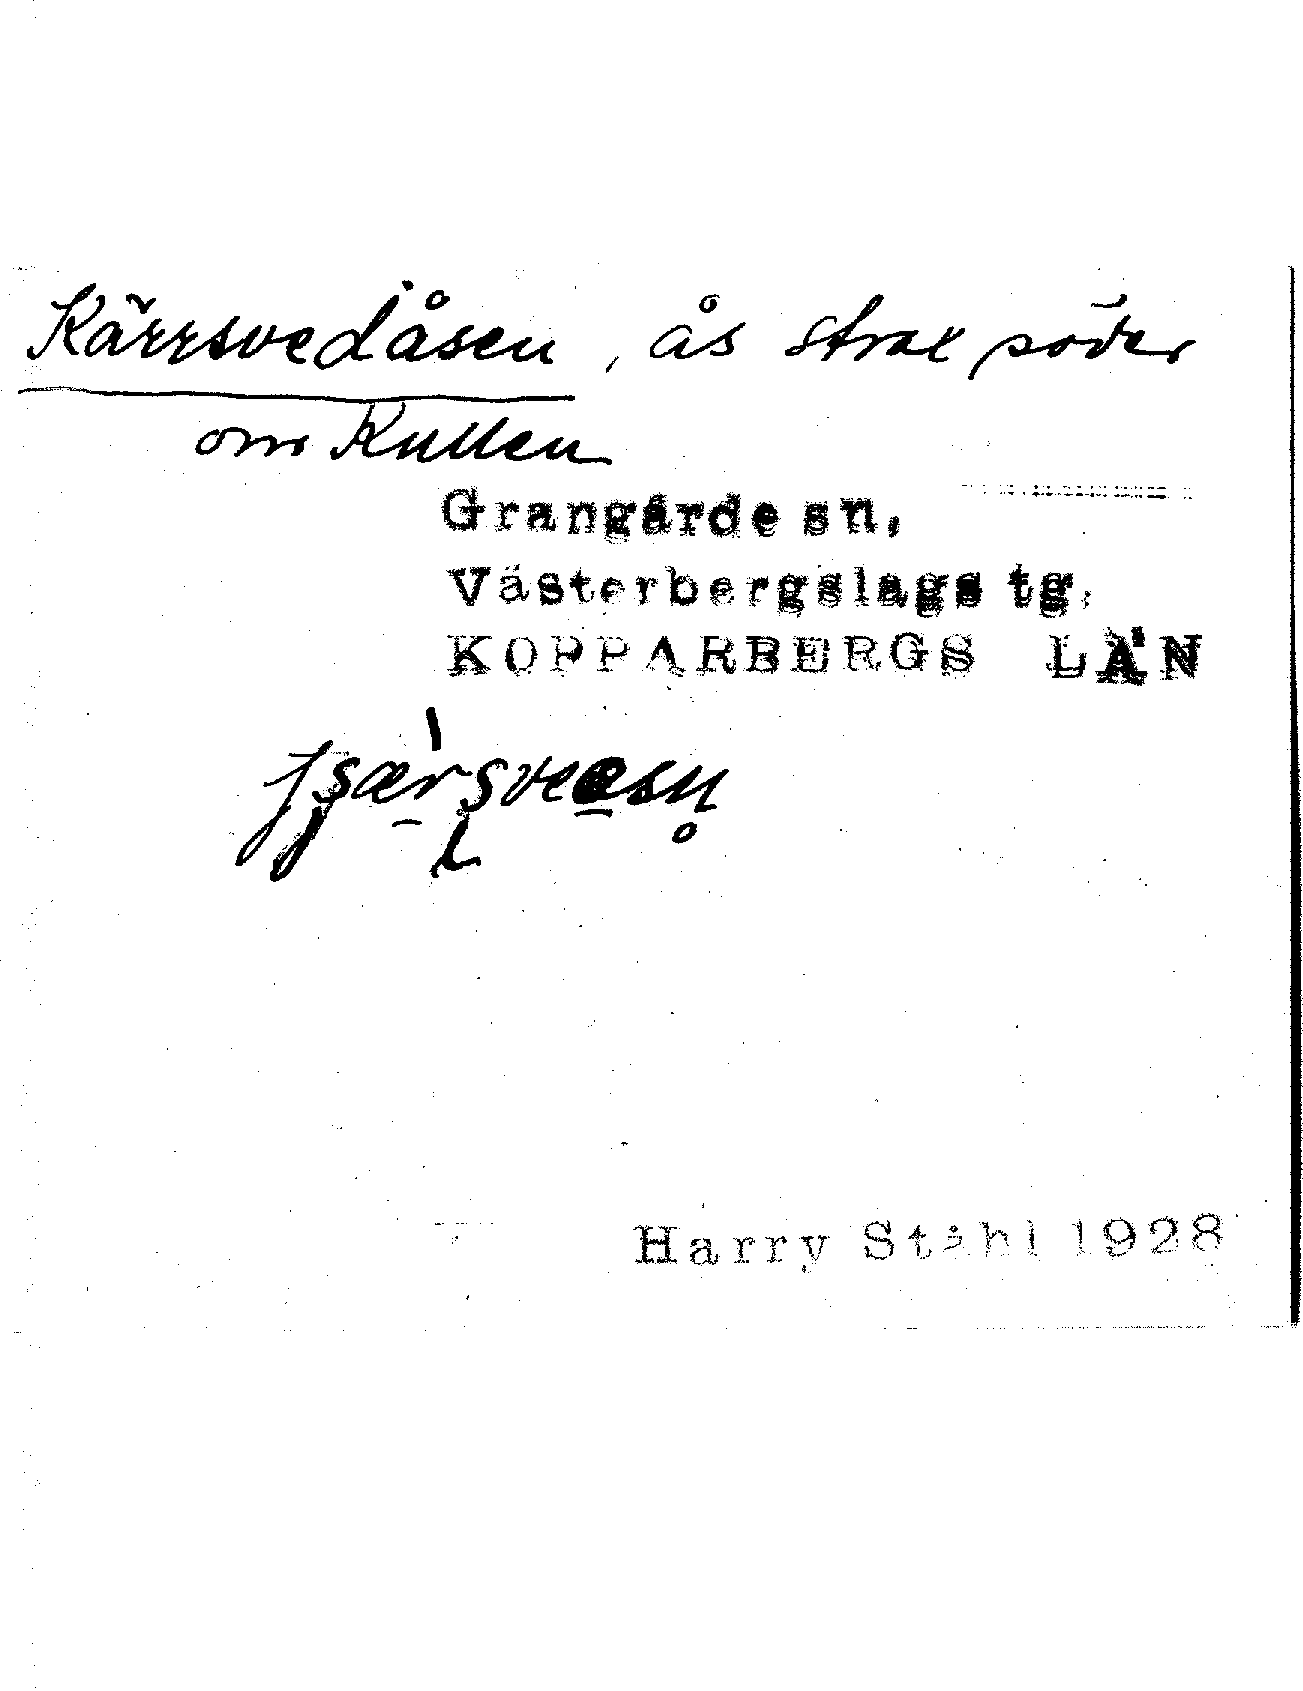 Kärrsvedåsen, ås strax söder
om Kullen
Grangärde sn,
Västerbergslags tg.
KOPPARBERGS LÄN
Harry Ståhl 1928